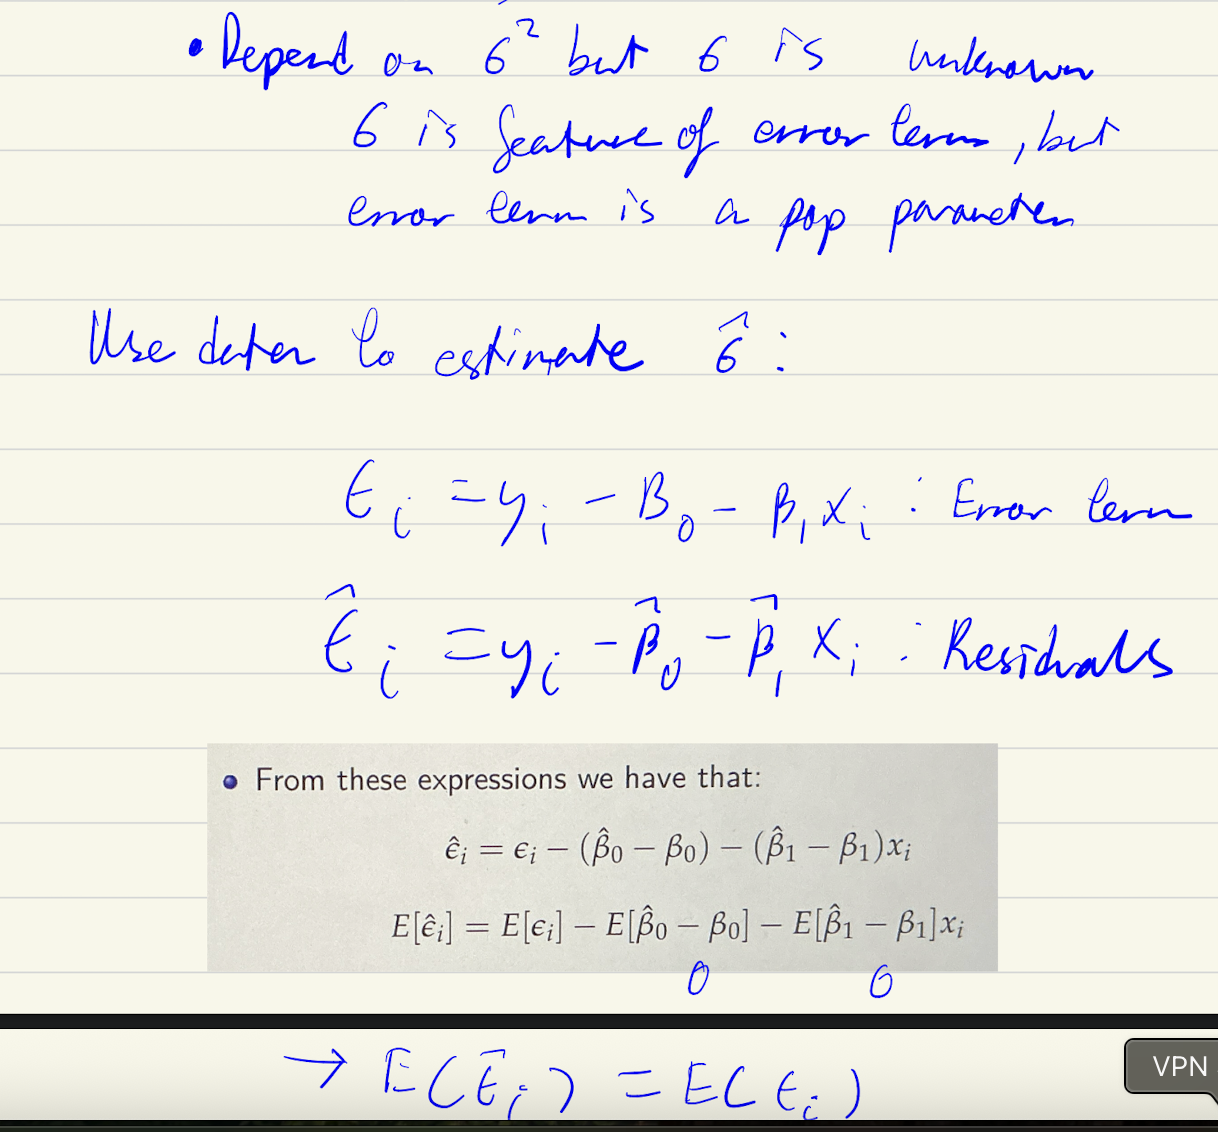 • Depend on 6² but 6 is unknown
6 is feature of error term, but
error term is a pop parameter
Use data to estimate 6̂ :
ϵᵢ = yᵢ − β₀ − β₁xᵢ : Error term
ϵ̂ᵢ = yᵢ − β̂₀ − β̂₁xᵢ : Residuals
• From these expressions we have that:
ϵ̂ᵢ = ϵᵢ − (β̂₀ − β₀) − (β̂₁ − β₁)xᵢ
E[ϵ̂ᵢ] = E[ϵᵢ] − E[β̂₀ − β₀] − E[β̂₁ − β₁]xᵢ
0 0
→ E(ϵ̂ᵢ) = E(ϵᵢ)
VPN